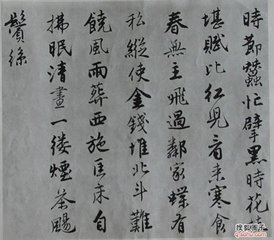 時節蠶忙擘黑時花枝
堪賦比紅兒看来寒食
春無主飛過鄰家蝶有
私縱使金錢堆北斗難
饒風雨葬西施匡床自
拂眠清晝一缕煙茶颺
鬢絲